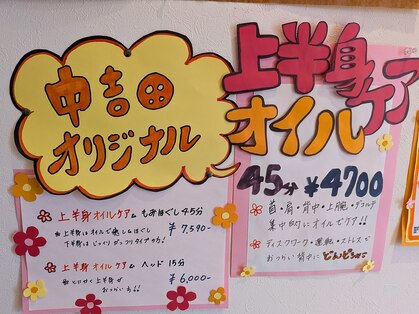 中吉田
オリジナル
上半身
オイルケア
45分 ¥4700
首・肩・背中・上腕・デコルテ
集中的にオイルでケア!!
ディスクワーク・運転・ストレスで
おつかい背中にどんどきゅ
上半身オイルケア&もみほぐし45分
上半身はオイルで癒しもほぐし
下半身はじっくりがっつりタイプの方!
¥7,590-
上半身オイルケア&ヘッド15分
とにかく上半身が
おつかい方!!
¥6,000-